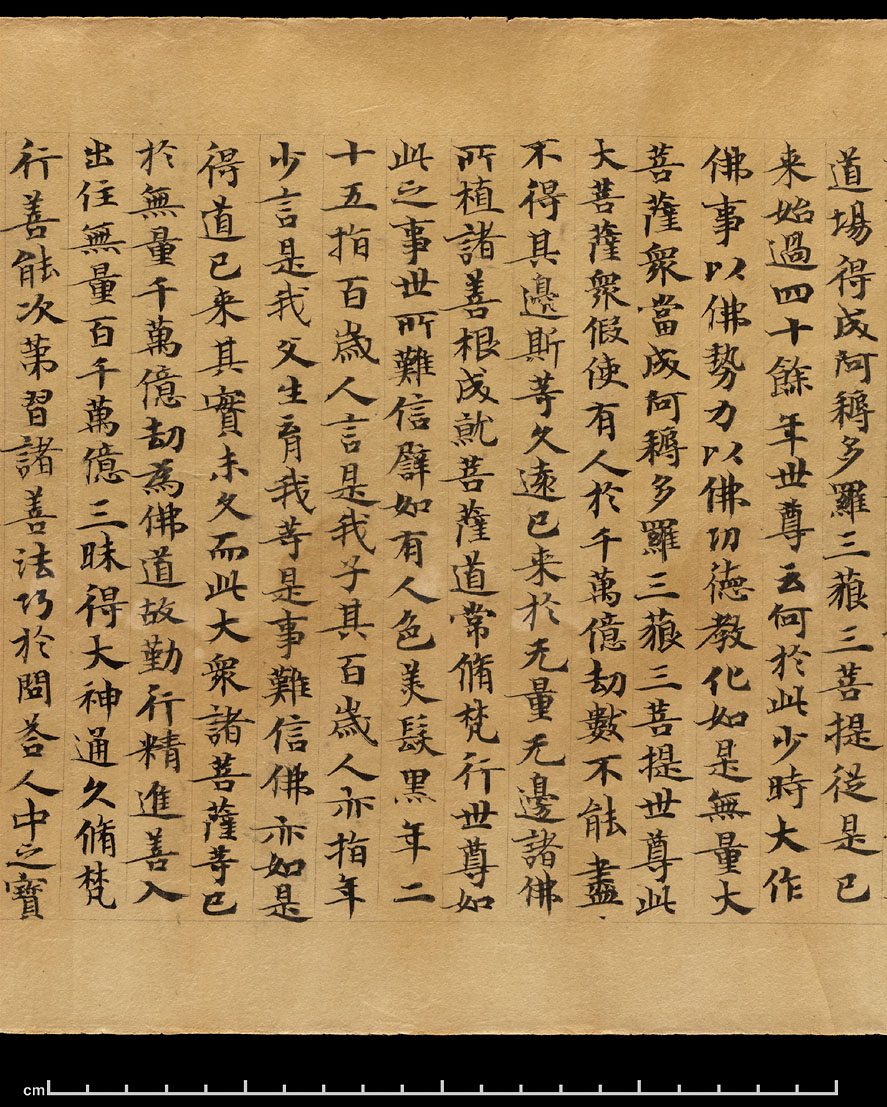 道場得成阿耨多羅三藐三菩提從是已
来始過四十餘年世尊云何於此少時大作
佛事以佛勢力以佛功德教化如是無量大
菩薩衆當成阿耨多羅三藐三菩提世尊此
大菩薩衆假使有人於千萬億劫數不能盡
不得其邊斯等久遠已来於无量无邊諸佛
所植諸善根成就菩薩道常脩梵行世尊如
此之事世所難信譬如有人色美髮黒年二
十五指百歲人言是我子其百歲人亦指年
少言是我父生育我等是事難信佛亦如是
得道已来其實未久而此大衆諸菩薩等已
於無量千萬億劫為佛道故勤行精進善入
出住無量百千萬億三昧得大神通久脩梵
行善能次第習諸善法巧於問荅人中之寶